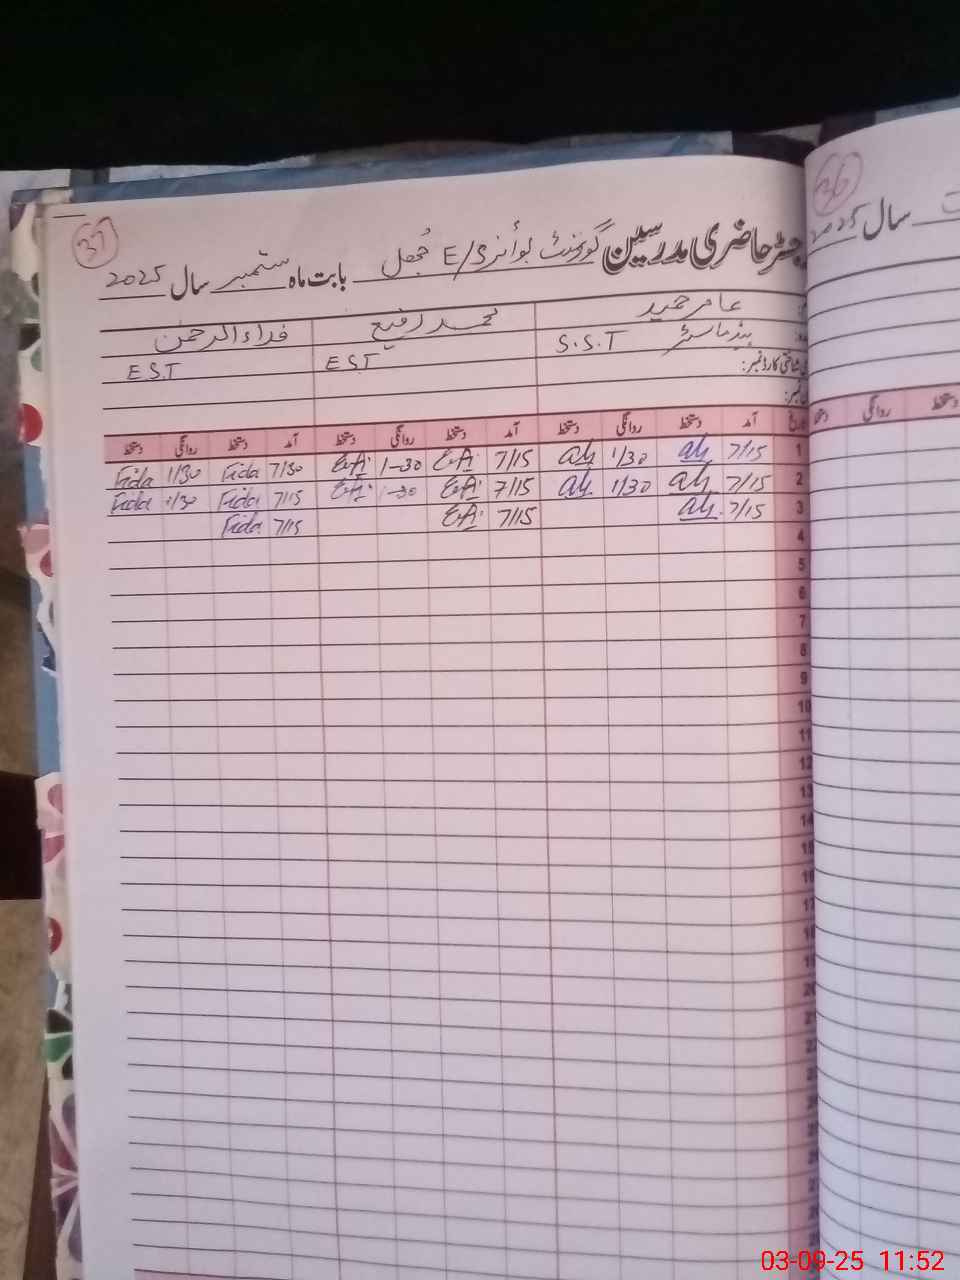 37
رجسٹر حاضری مدرسین گورنمنٹ بوائز E/S جھل بابت ماہ ستمبر سال 2025
عامر حمید محمد رفیع فداء الرحمٰن
ہیڈ ماسٹر S.S.T EST E S.T
شناختی کارڈ نمبر:
تاریخ آمد دستخط روانگی دستخط آمد دستخط روانگی دستخط آمد دستخط روانگی دستخط
1 7/15 1/30 7/15 1-30 7/30 Fida 1/30 Fida
2 7/15 1/30 7/15 1-30 7/15 Fida 1/30 Fida
3 7/15 7/15 7/15 Fida
4
5
6
7
8
9
10
11
12
13
14
15
16
17
36
سال 2025
دستخط روانگی دستخط
03-09-25 11:52